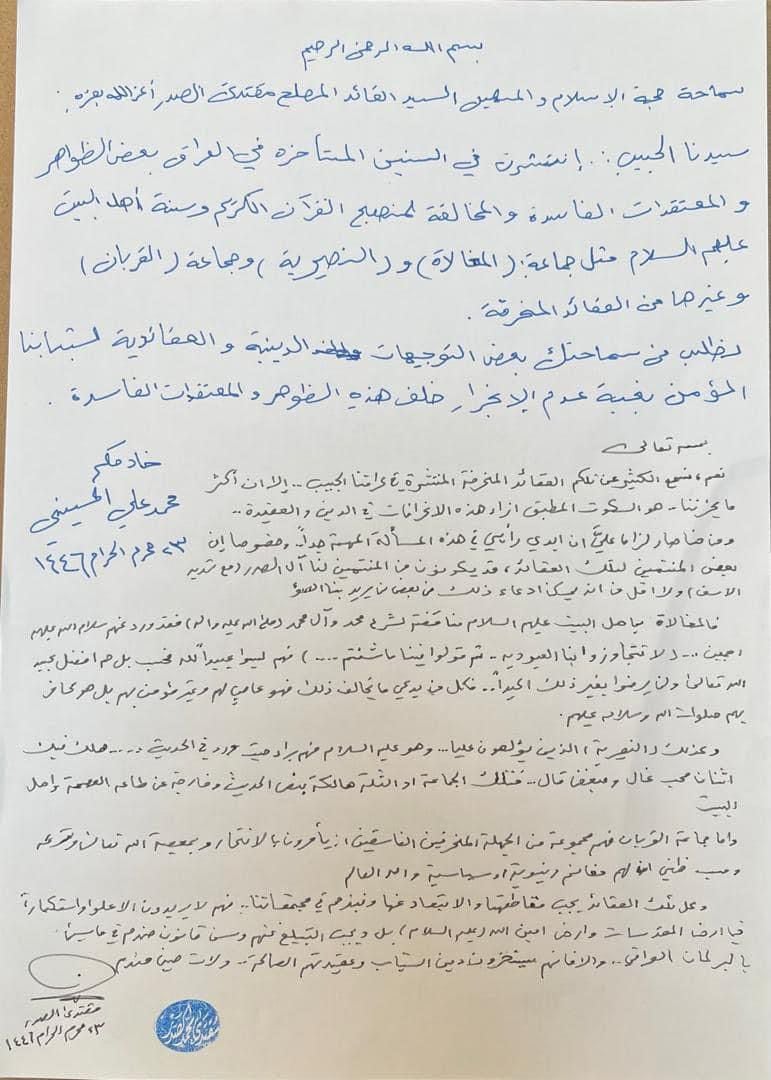 بسم الله الرحمن الرحيم
سماحة حجة الإسلام والمسلمين السيد القائد المصلح مقتدى الصدر أعز الله بعزه
سيدنا الحبيب .. إنتشرت في السنين المتأخرة في العراق بعض الظواهر
والمعتقدات الفاسدة والمخالفة لمنهج القرآن الكريم وسنة أهل البيت
عليهم السلام مثل جماعة: (المغالاة) و(النصيرية) وجماعة (القربان)
وغيرها من العقائد المنحرفة .
نطلب من سماحتك بعض التوجيهات الدينية والعقائدية لشبابنا
المؤمن بغية عدم الإنجرار خلف هذه الظواهر والمعتقدات الفاسدة .
خادمكم
محمد علي الحسيني
٢٣ محرم الحرام ١٤٤٦
بسمه تعالى
نعم، الكثير عن تلكم العقائد المنحرفة المنتشرة في عراقنا الحبيب .. إلا ان أكثر
ما يحزننا .. هو السكوت المطبق ازاء هذه الانحرافات في الدين والعقيدة ..
ومن هنا صار لزاما علي ان ابدي رأيي في هذه المسألة المهمة جداً. وخصوصا إن
بعض المنتمين لتلك العقائد، قد يكونون من المنتمين لنا آل الصدر (مع شديد
الاسف) ولا اقل من انه يمكن ادعاء ذلك من بعض من يريد بنا السوء
فالمغالاة بأهل البيت عليهم السلام مناقضة لشرع محمد وآل محمد (صلى الله عليه واله) فقد ورد عنهم سلام الله عليهم
اجمعين ... (لا تتجاوزوا بنا العبودية .. ثم قولوا فينا ما شئتم ....) فهم ليسوا عبيداً لله فحسب بل هم افضل عبيد
الله تعالى ولن يرضوا بغير ذلك أبداً .. فكل من يدعي ما يخالف ذلك فهو عاصٍ لهم وغير مؤمن بهم بل هو مخالف
لهم صلوات الله وسلامه عليهم .
وكذلك (النصيرية) الذين يؤلهون علياً .. وهو عليه السلام منهم براء حيث ورد في الحديث .... هلك فيك
اثنان محب غال ومبغض قال .. فتلك الجماعة او الثلة هالكة بنص الحديث وخارجة عن طاعة العصمة واهل
البيت
واما جماعة القربان فهم مجموعة من الجهلة المنحرفين الفاسقين، إذ يأمرون بالانتحار وبمعصية الله تعالى وشرعه
وحسب ظني ان لهم مغانم دنيوية او سياسية والله العالم
وعلى تلك العقائد يجب مقاطعتها والابتعاد عنها ونبذهم في مجتمعاتنا .. فهم لا يريدون الا علوا واستكباراً
في ارض المقدسات وارض امين الله (عليه السلام) بل ويجب التبليغ عنهم وسن قانون
بالبرلمان العراقي .. والا فانهم سينخرون دين الشباب وعقيدتهم الصالحة .. ولات حين مندم
مقتدى الصدر
٢٣ محرم الحرام ١٤٤٦